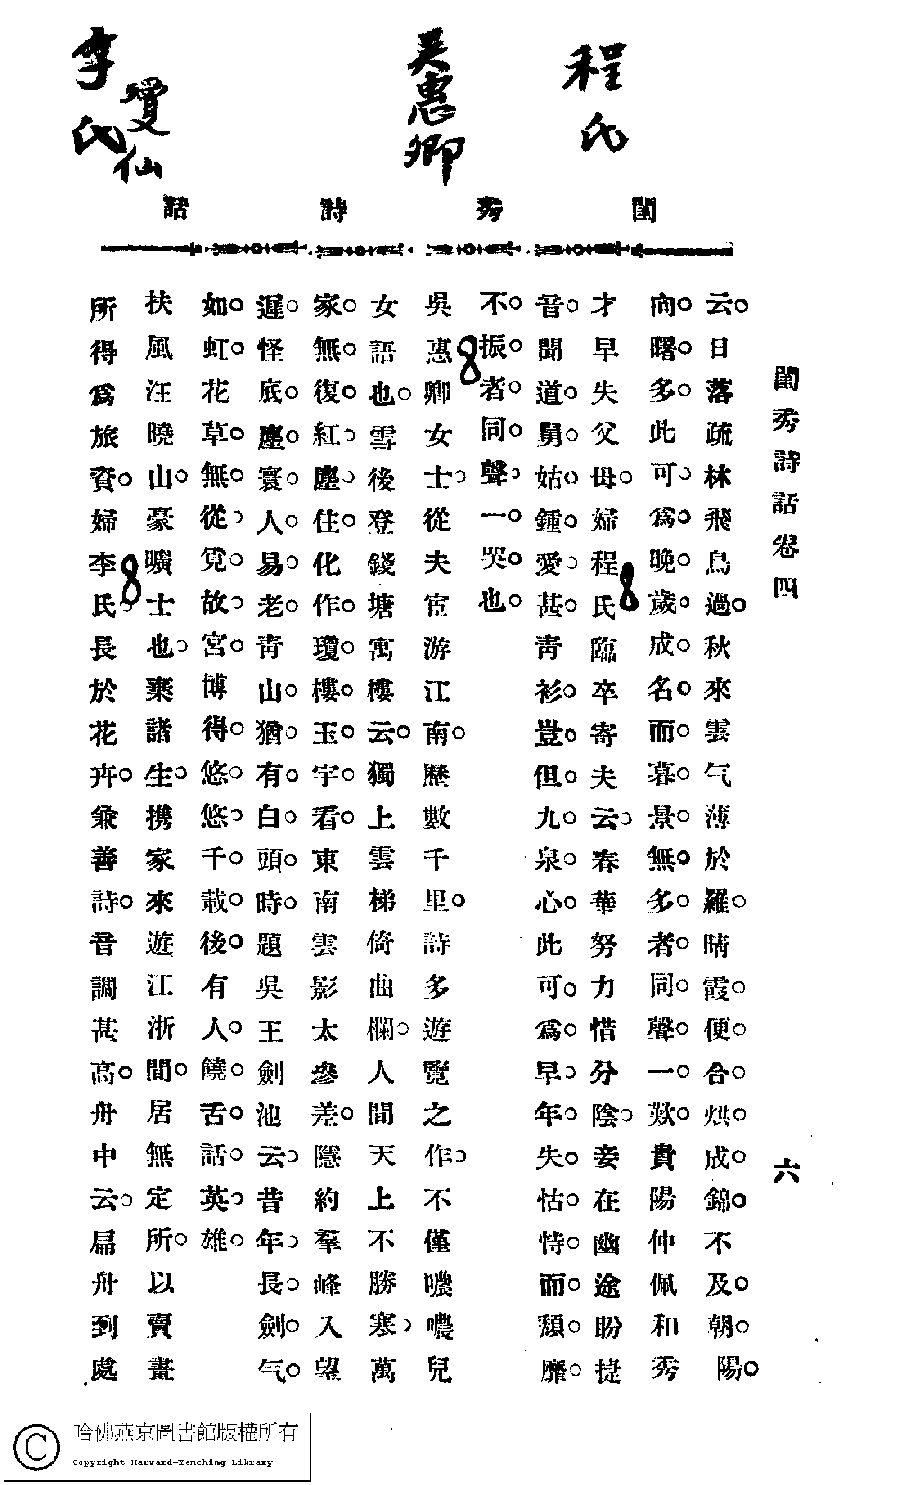 程氏
吳惠卿
愛仙
李氏
閨秀詩話
閨秀詩話卷四
六
云。日落疏林飛鳥過。秋來雲气薄於羅。晴霞便合。烘成。錦。不及。朝。陽。
向。曙。多。此可。爲。晚。歲。成。名。而。暮。景。無。多。者。同。聲。一。歎。貴陽仲佩和秀
才早失父母。婦程氏臨卒寄夫云。春華努力惜分陰。妾在幽途盼捷
音。聞道。舅。姑。鍾。愛。甚。青衫。豈。但。九。泉。心。此可。爲。早。年。失。怙。恃。而。頹。靡。
不。振。者。同。聲。一。哭。也。
吳惠卿女士。從夫宦游江南。歷數千里。詩多遊覽之作。不僅噥噥兒
女語也。雪後登錢塘寓樓云。獨上雲梯倚曲欄。人間天上不勝寒。萬
家。無。復。紅。塵。住。化作瓊。樓。玉。宇。看。東南雲影太參差。隱約羣峰入望
遲。怪底。塵。寰。人。易。老。青山。猶。有。白。頭。時。題吳王劍池云。昔年。長。劍。气。
如。虹。花草。無。從。覓。故。宮。博得。悠。悠。千。載。後。有人。饒。舌。話。英。雄。
扶風汪曉山。豪曠士也。棄諸生。携家來遊江浙間。居無定所。以賣畫
所得爲旅資。婦李氏。長於花卉。兼善詩。音調甚高。舟中云。扁舟到處
哈佛燕京圖書館版權所有
Copyright Harvard-Yenching Library